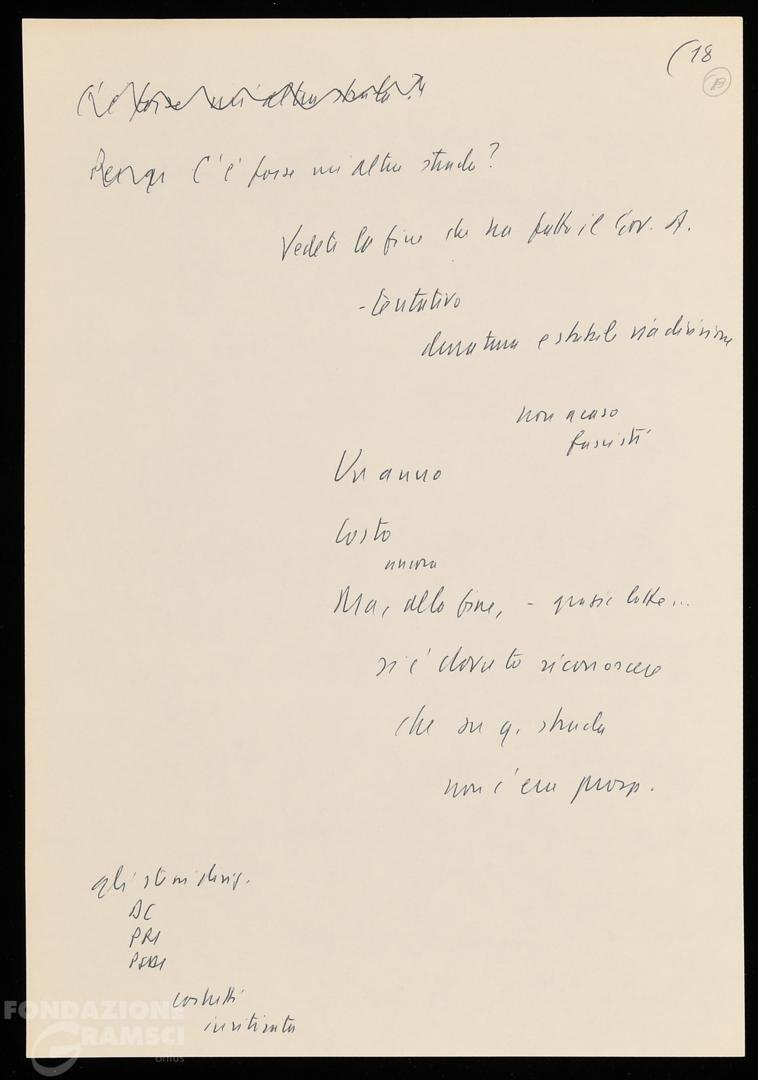 (18
18
C'è forse un'altra strada?
C'è forse un'altra strada?
Vedete la fine che ha fatto il Gov. A.
- tentativo
duratura e stabile via divisione
non a caso
fascisti
Un anno
Costo
ancora
Ma, alla fine, - grazie lotte...
si è dovuto riconoscere
che su q. strada
non c'era prosp.
gli stessi dirig.
DC
PRI
PSDI
costretti
in ritirata
FONDAZIONE
GRAMSCI
onlus